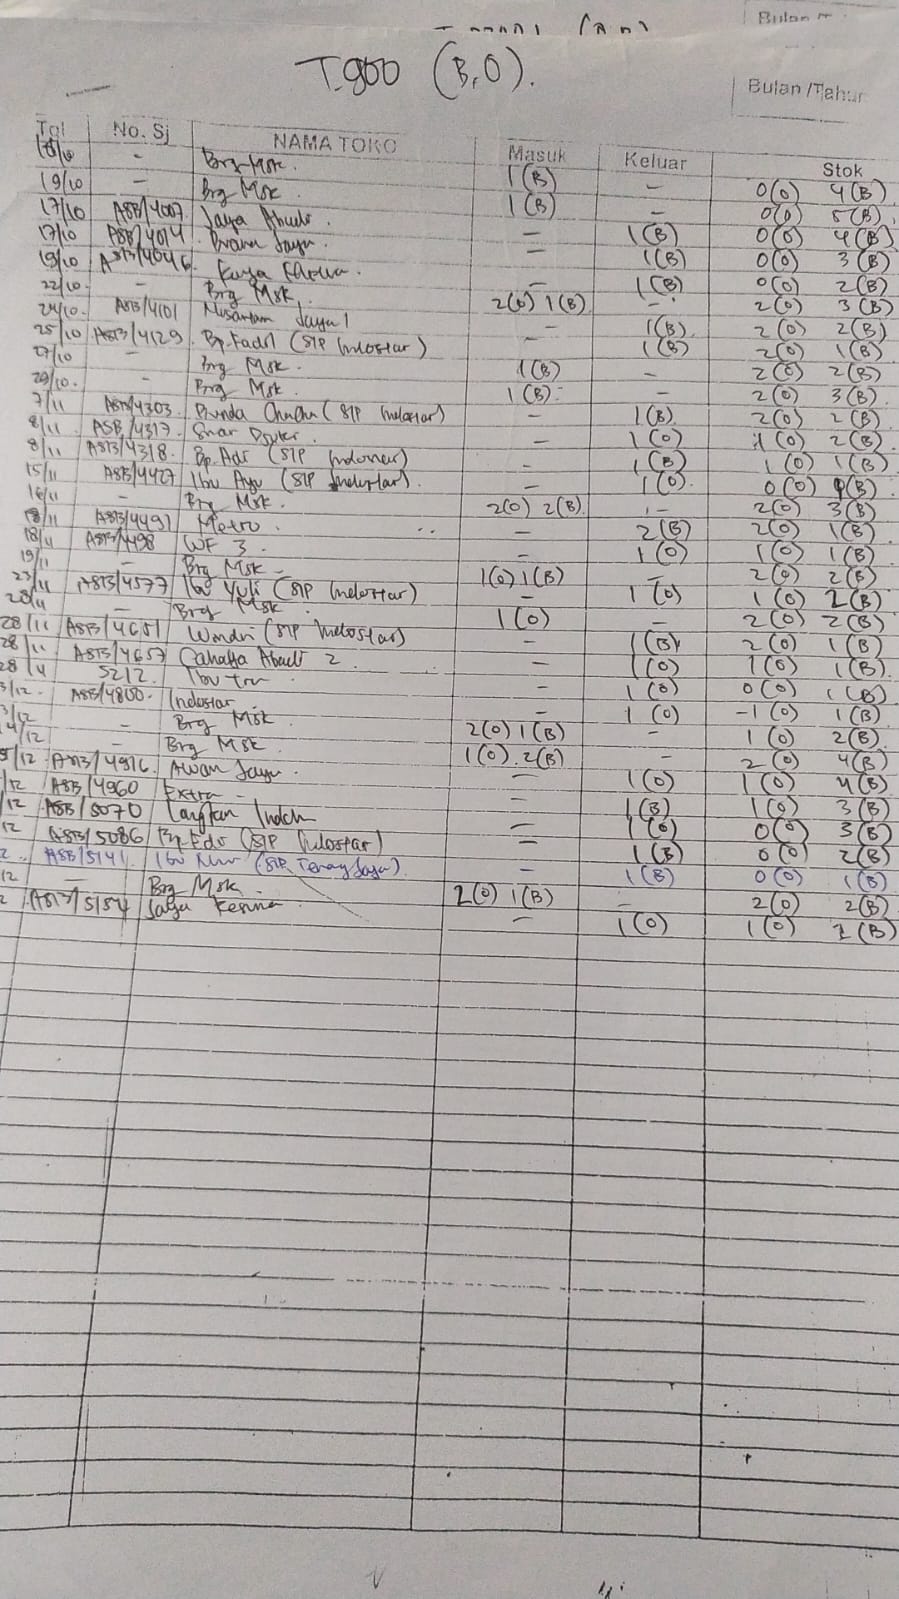 T.900 (B,O).
Bulan /Tahun
Tgl No. Sj NAMA TOKO Masuk Keluar Stok
- Brg Msk. 1(B) - 0(0) 4(B)
19/10 - Brg Msk 1(B) - 0(0) 5(B)
17/10 ASB/4007 Jaya Abadi. - 1(B) 0(0) 4(B)
17/10 ASB/4014 Jaya. - 1(B) 0(0) 3(B)
19/10 ASB/4046 - 1(B) 0(0) 2(B)
22/10. - Brg Msk 2(0) 1(B) - 2(0) 3(B)
24/10. ASB/4101 Jaya 1 - 1(B) 2(0) 2(B)
25/10 ASB/4129 Bp. Fadil (STP Indostar) - 1(B) 2(0) 1(B)
27/10 - Brg Msk. 1(B) - 2(0) 2(B)
29/10. - Brg Msk. 1(B) - 2(0) 3(B)
7/11 ASB/4303 (STP Indostar) - 1(B) 2(0) 2(B)
8/11 ASB/4317 - 1(0) 1(0) 2(B)
8/11 ASB/4318. Bp. Adi (STP Indostar) - 1(B) 1(0) 1(B)
15/11 ASB/4427 Ibu Ayu (STP Indostar). - 1(0). 0(0) 1(B)
16/11 - Brg Msk. 2(0) 2(B) - 2(0) 3(B)
18/11 ASB/4491 Metro. - 2(B) 2(0) 1(B)
18/11 ASB/4498 WF 3. - 1(0) 1(0) 1(B)
19/11 - Brg Msk 1(0) 1(B) - 2(0) 2(B)
23/11 ASB/4577 Ibu Yuli (STP Indostar) - 1(0) 1(0) 2(B)
28/11 - Brg Msk. 1(0) - 2(0) 2(B)
28/11 ASB/4651 Wandi (STP Indostar) - 1(B) 2(0) 1(B)
28/11 ASB/4657 Cahaya Abadi 2 - 1(0) 1(0) 1(B)
28/11 5212. Ibu - 1(0) 0(0) 1(B)
3/12. ASB/4800. Indostar. - 1(0) -1(0) 1(B)
3/12 - Brg Msk 2(0) 1(B) - 1(0) 2(B)
4/12 - Brg Msk 1(0). 2(B) - 2(0) 4(B)
5/12 ASB/4916 Awan Jaya. - 1(0) 1(0) 4(B)
12 ASB/4960 Extra - 1(B) 1(0) 3(B)
12 ASB/5070 Indah - 1(0) 0(0) 3(B)
12 ASB/5086 Bp. Edo (STP Indostar) - 1(B) 0(0) 2(B)
ASB/5141 Ibu Nur (STP Jaya) - 1(B) 0(0) 1(B)
12 - Brg Msk. 2(0) 1(B) - 2(0) 2(B)
ASB/5154 Jaya - 1(0) 1(0) 2(B)